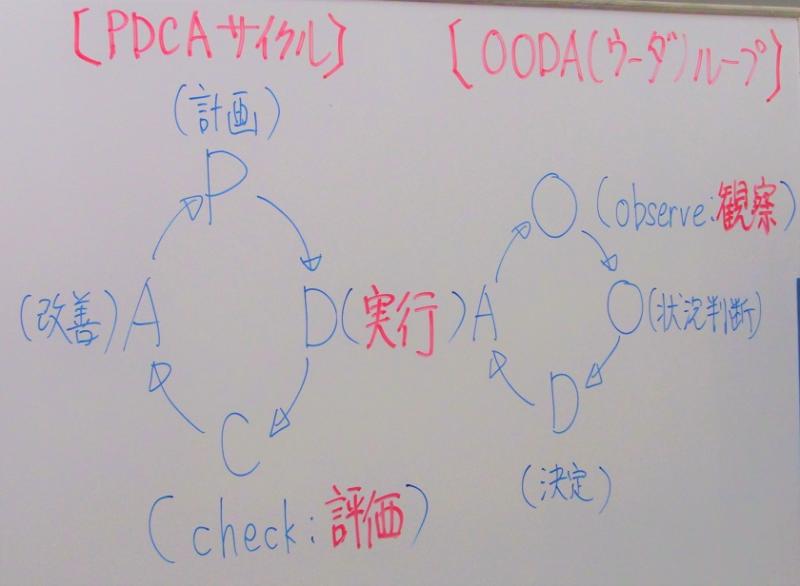 [PDCAサイクル]
(計画)
P
(改善)A
D(実行)
C
(check:評価)
[OODA(ウーダ)ループ]
O(observe:観察)
O(状況判断)
A
D
(決定)